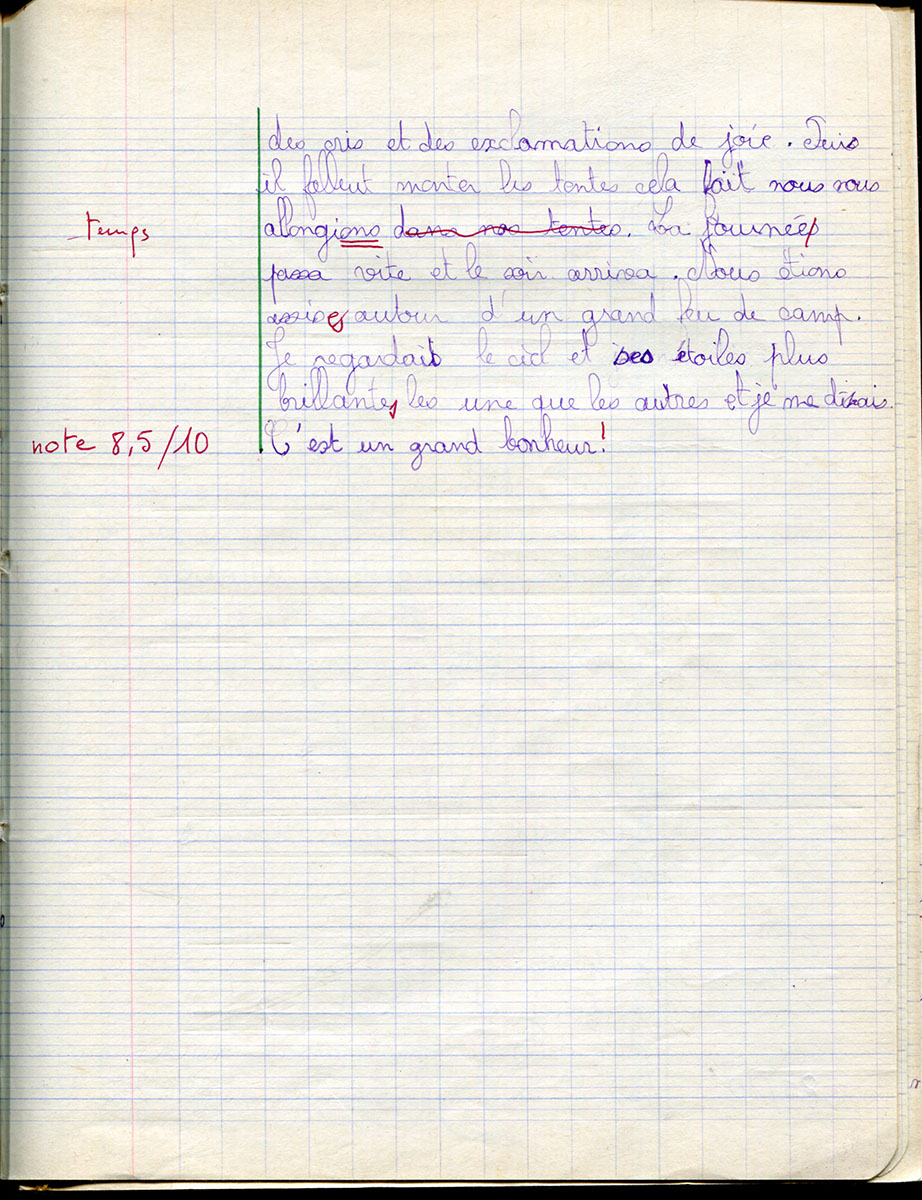 des cris et des exclamations de joie. Puis
il fallut monter les tentes cela fait nous nous
temps
allongions dans nos tentes. La journée
passa vite et le soir arriva. Nous étions
assises autour d'un grand feu de camp.
Je regardais le ciel et ses étoiles plus
brillantes les une que les autres et je me disais.
note 8,5/10
C'est un grand bonheur!